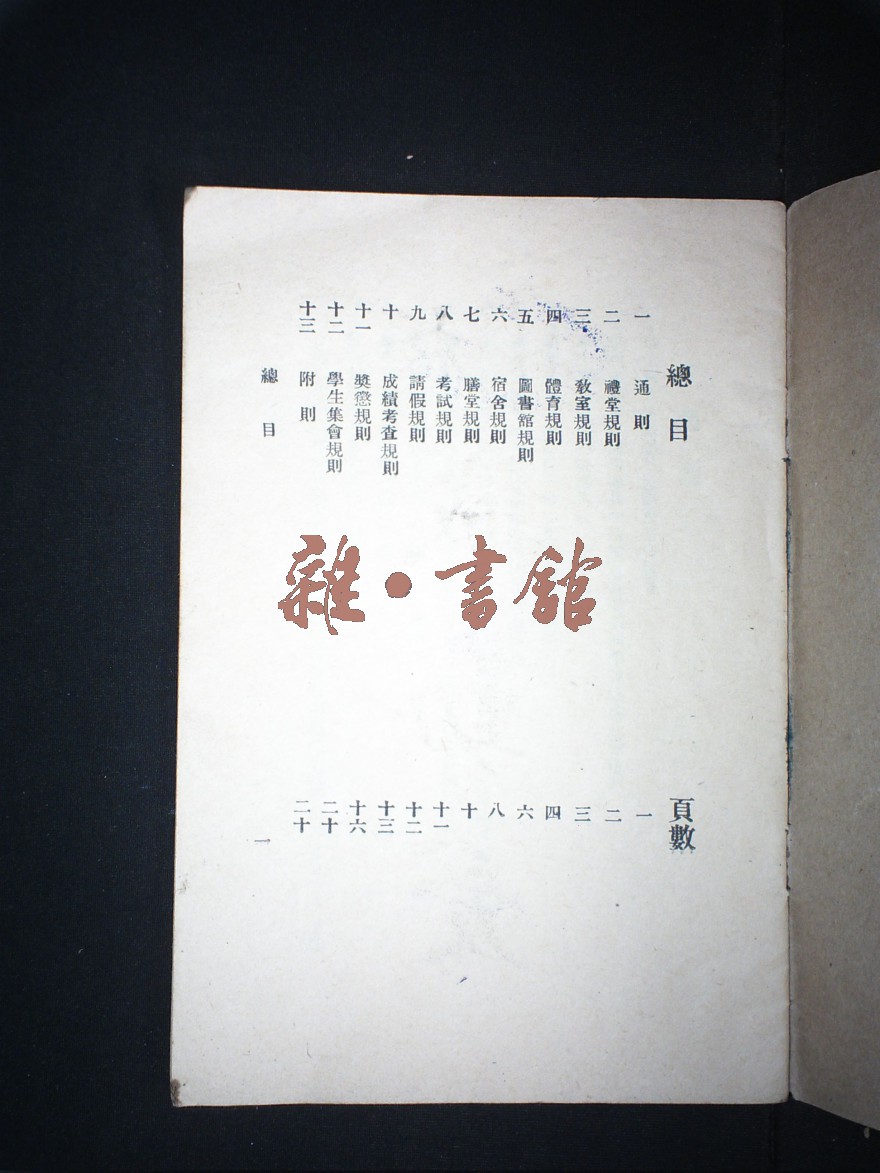 總目 頁數
一 通則 一
二 禮堂規則 二
三 教室規則 三
四 體育規則 四
五 圖書舘規則 六
六 宿舍規則 八
七 膳堂規則 十
八 考試規則 十一
九 請假規則 十二
十 成績考查規則 十三
十一 獎懲規則 十六
十二 學生集會規則 二十
十三 附則 二十
總目 一
雜·書舘